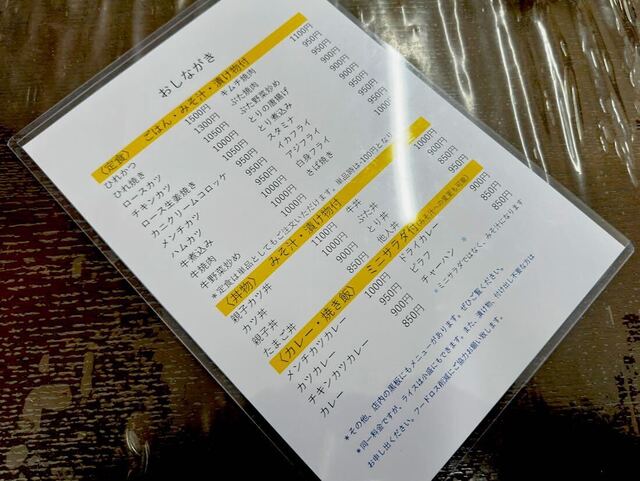 おしながき
〈定食〉 ごはん・みそ汁・漬け物付
ひれかつ 1500円 キムチ焼肉 1100円
ひれ焼き 1300円 ぶた焼肉 950円
ロースカツ 1050円 ぶた野菜炒め
チキンカツ とりの唐揚げ
ロース生姜焼き とり煮込み
カニクリームコロッケ スタミナ
メンチカツ イカフライ
ハムカツ アジフライ
牛煮込み 白身フライ
牛焼肉 さば焼き
牛野菜炒め
*定食は単品としてもご注文いただけます。単品時は-100円となり
〈丼物〉 みそ汁・漬け物付
親子カツ丼 1100円 牛丼 1000円
カツ丼 1000円 ぶた丼 900円
親子丼 900円 とり丼 850円
たまご丼 850円 他人丼 950円
〈カレー・焼き飯〉 ミニサラダ付(みそ汁への変更も可能)
メンチカツカレー 1000円 ドライカレー 900円
カツカレー 950円 ピラフ 850円
チキンカツカレー 900円 チャーハン 850円
カレー 850円 *ミニサラダではなく、みそ汁になります
*その他、店内の黒板にもメニューがあります。ぜひご覧ください。
*同一料金ですが、ライスは小盛にもできます。また、漬け物、付け出し不要な方は
お申し出ください。フードロス削減にご協力お願い致します。